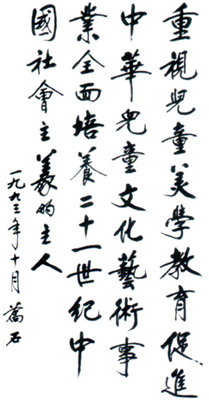 重視兒童美學教育促進
中華兒童文化藝術事
業全面培養二十一世紀中
國社會主義的主人
一九九三年十月 喬石